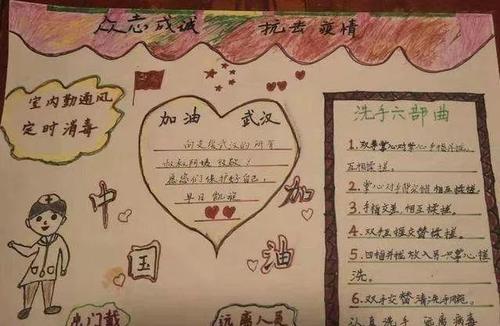 众志成诚 抗击疫情
室内勤通风
定时消毒
加油 武汉
向支援武汉的所有
叔叔阿姨致敬！
愿您们保护好自己，
早日凯旋
中国加油
洗手六部曲
1.双手掌心对掌心手指并拢，
互相揉搓。
2.掌心对手背交错相互揉搓。
3.手指交差，相互揉搓。
4.双拇指交替揉搓。
5.四指并拢放入另一只掌心揉
洗。
6.双手交替清洗手腕。
认真洗手 远离病毒
出门戴
远离人员